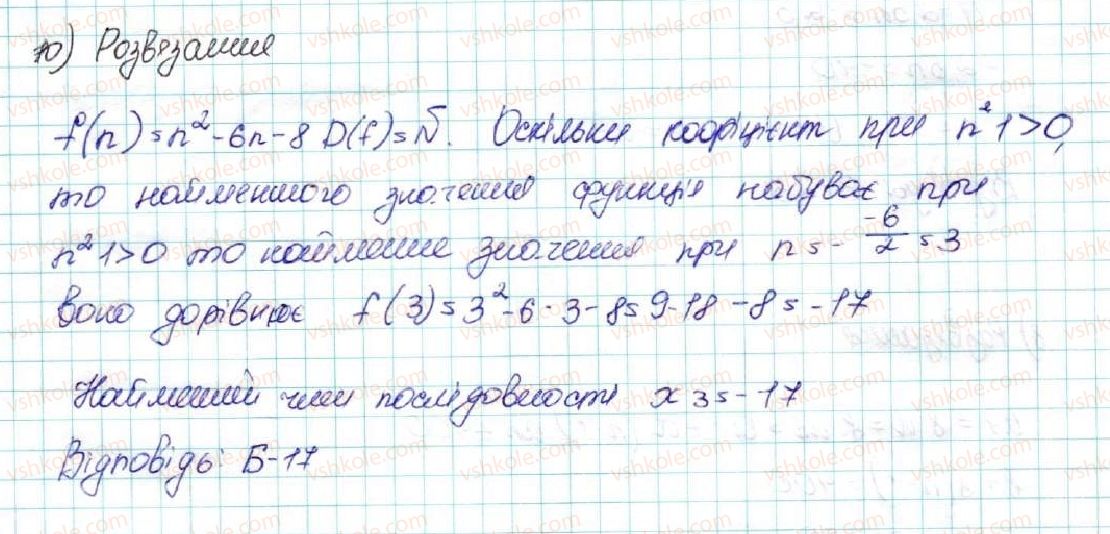 10) Розв'язання
f(n) = n² - 6n - 8 D(f) = N. Оскільки коефіцієнт при n² 1 > 0,
то найменшого значення функція набуває при
n² 1 > 0 то найменше значення при n = - -6/2 = 3
воно дорівнює f(3) = 3² - 6 · 3 - 8 = 9 - 18 - 8 = -17
Найменший член послідовності x 3 = -17
Відповідь: Б -17